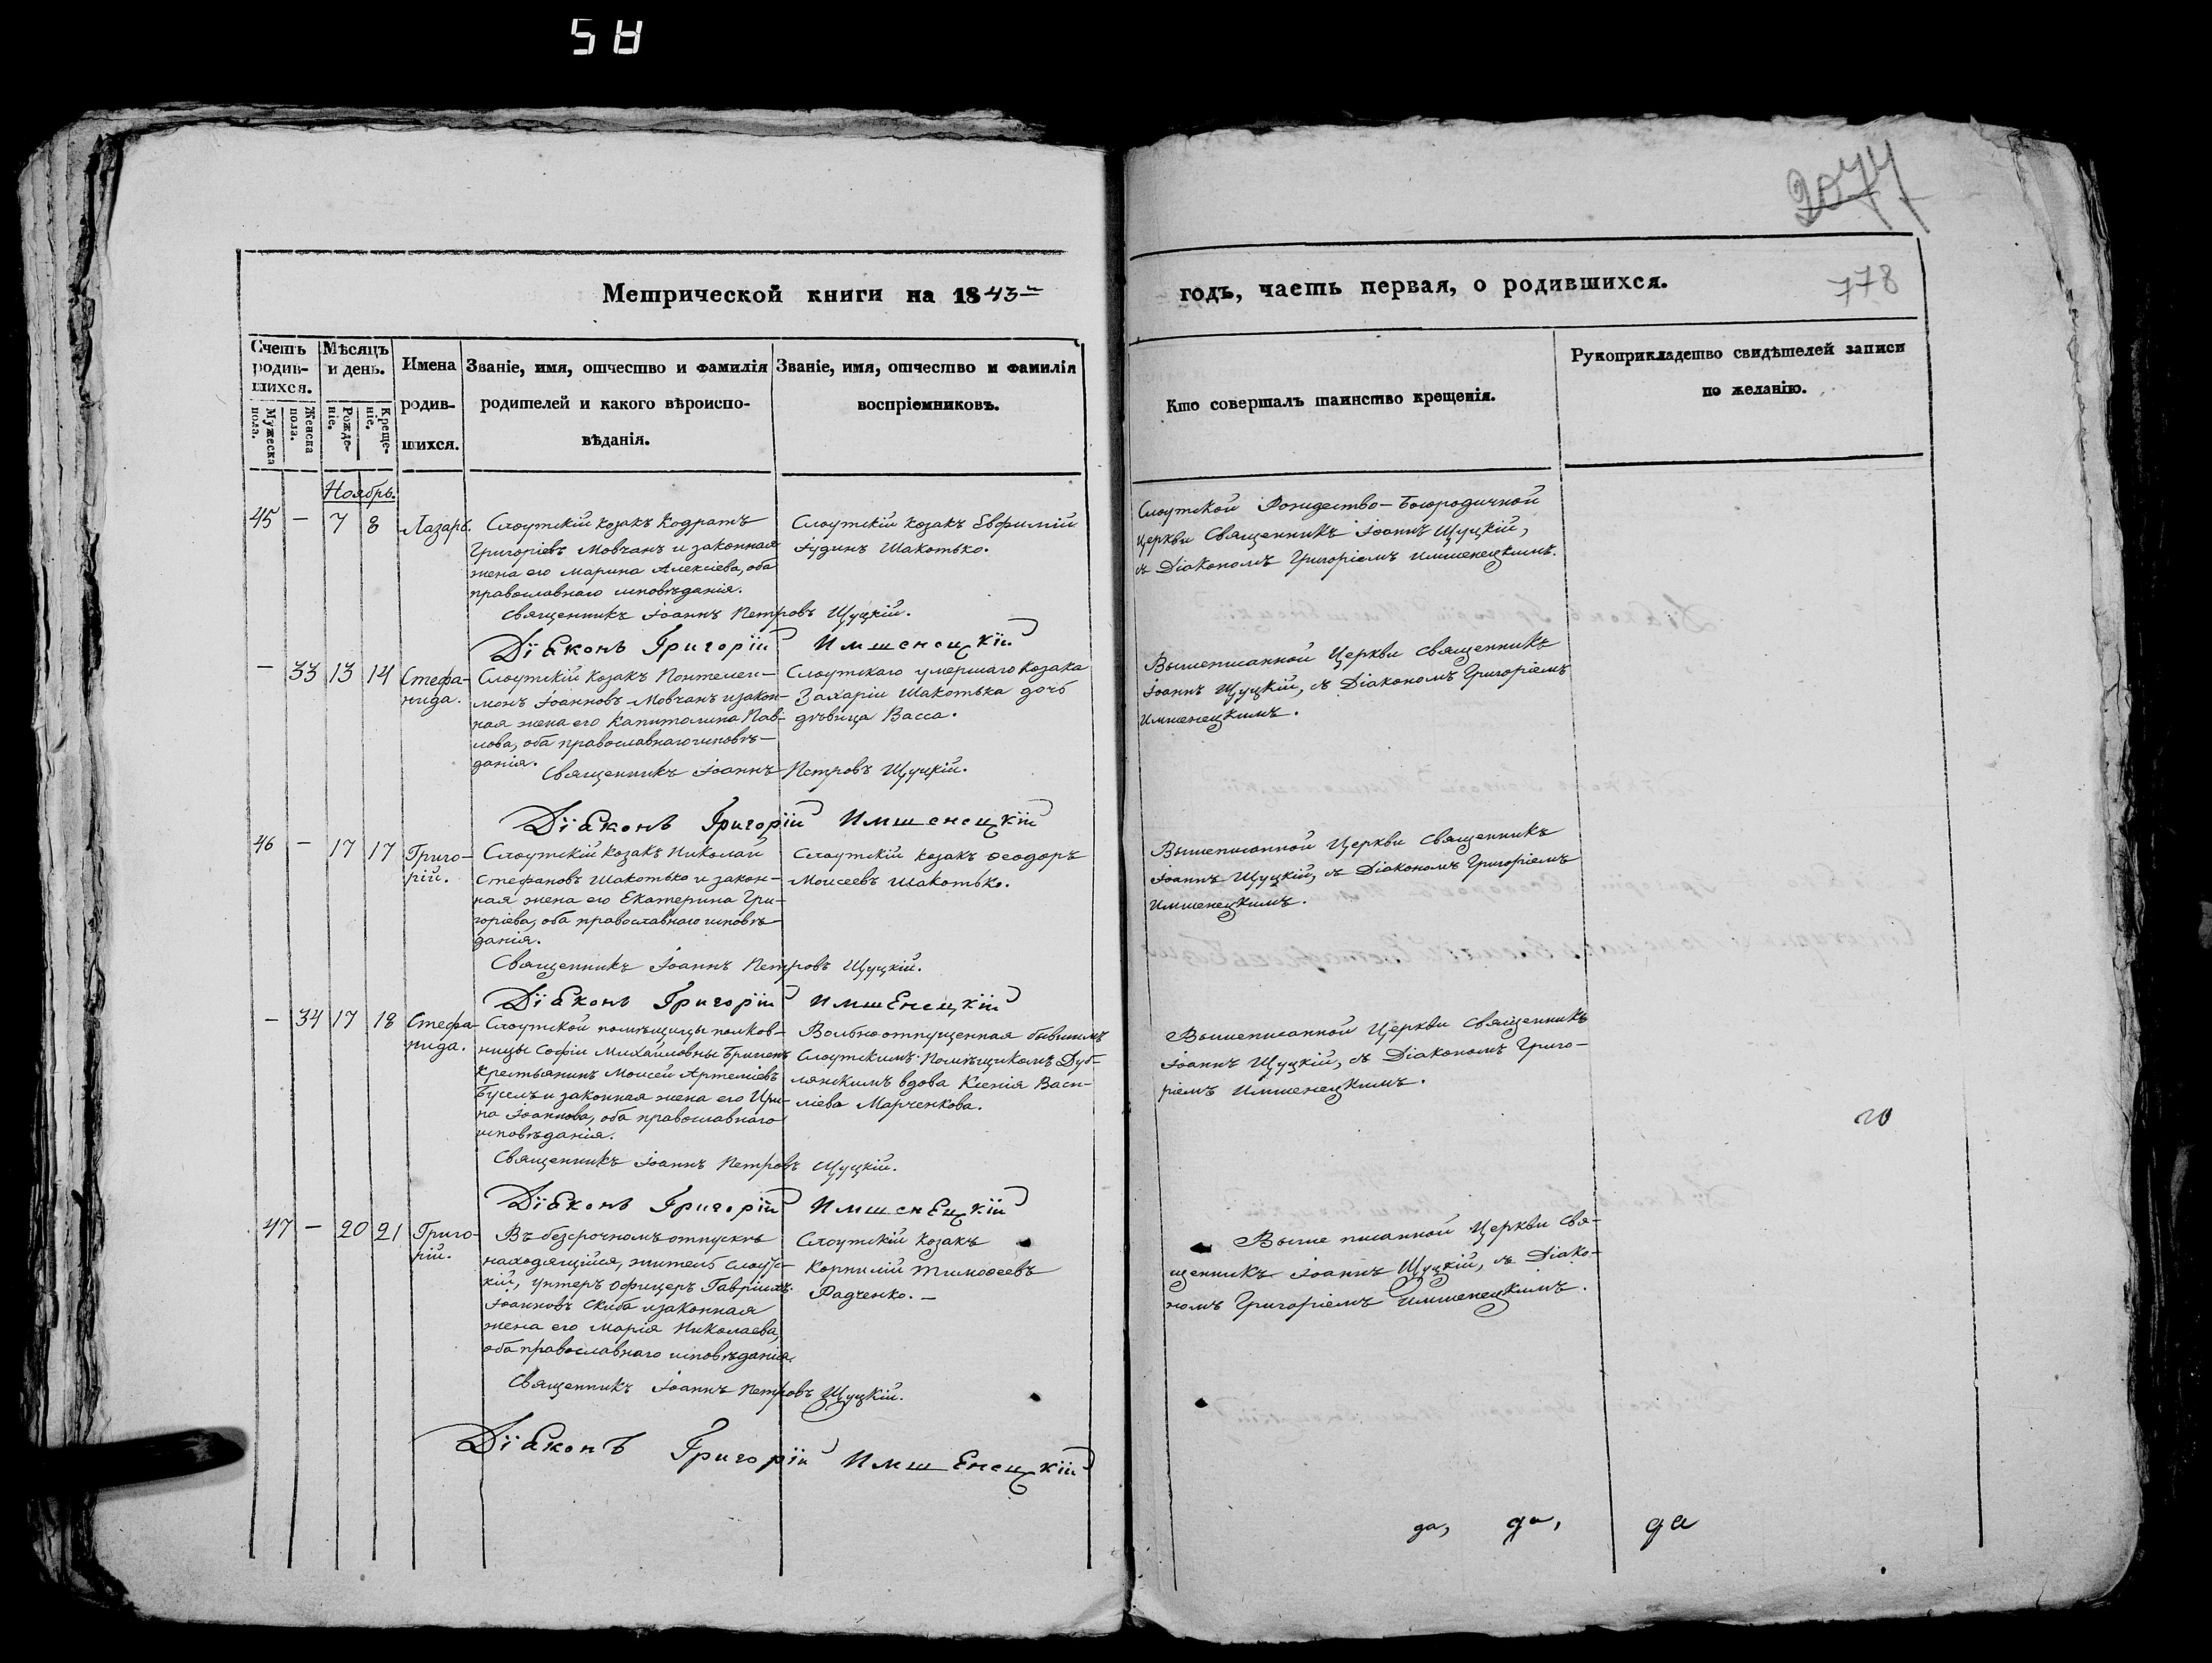 58
2077
778
Метрической книги на 1843й
годъ, часть первая, о родившихся.
Счетъ родившихся.
Мужеска пола.
Женска пола.
Мѣсяцъ и день.
Рожденіе.
Крещеніе.
Имена родившихся.
Званіе, имя, отчество и фамилія
родителей и какого вѣроиспо-
вѣданія.
Званіе, имя, отчество и фамилія
воспріемниковъ.
Кто совершалъ таинство крещенія.
Рукоприкладство свидѣтелей записи
по желанію.
Ноябрь.
45 — 7 8 Лазарь.
Слоутскій козакъ Кодратъ
Григоріевъ Мовчанъ и законная
жена его Марина Алексіева, оба
православнаго исповѣданія.
Слоутскій козакъ Евфимій
Іудинъ Шакотько.
Слоутской Рождество-Богородичной
Церкви Священникъ Іоаннъ Щуцкій,
съ Діакономъ Григоріемъ Имшенецкимъ.
Священникъ Іоаннъ Петровъ Щуцкій.
Діаконъ Григорій Имшенецкій
— 33 13 14 Стефа-
нида.
Слоутскій козакъ Понтелеи-
монъ Іоанновъ Мовчанъ и закон-
ная жена его Капитолина Пав-
лова, оба православнаго исповѣ-
данія.
Слоутскаго умершаго козака
Захаріи Шакотька дочь
дѣвица Васса.
Вышеписанной Церкви Священникъ
Іоаннъ Щуцкій, съ Діакономъ Григоріемъ
Имшенецкимъ.
Священникъ Іоаннъ Петровъ Щуцкій.
Діаконъ Григорій Имшенецкій
46 — 17 17 Григо-
рій.
Слоутскій козакъ Николай
Стефановъ Шакотько и закон-
ная жена его Екатерина Гри-
горіева, оба православнаго исповѣ
данія.
Слоутскій козакъ Ѳеодоръ
Моисеевъ Шакотько.
Вышеписанной Церкви Священникъ
Іоаннъ Щуцкій, съ Діакономъ Григоріемъ
Имшенецкимъ.
Священникъ Іоаннъ Петровъ Щуцкій.
Діаконъ Григорій Имшенецкій
— 34 17 18 Стефа-
нида.
Слоутской помѣщицы полков-
ницы Софіи Михайловны
Крестьянинъ Моисей Артеміевъ
и законная жена его Ири-
на Іоаннова, оба православнаго
исповѣданія.
Вольноотпущенная бывшимъ
Слоутскимъ помѣщикомъ Дуб-
лянскимъ вдова Ксенія Васи-
ліева Марченкова.
Вышеписанной Церкви Священникъ
Іоаннъ Щуцкій, съ Діакономъ Григо-
ріемъ Имшенецкимъ.
Священникъ Іоаннъ Петровъ Щуцкій.
Діаконъ Григорій Имшенецкій
47 — 20 21 Григо-
рій.
Въ безсрочномъ отпускѣ
находящійся, житель Слоутс-
кій, унтеръ офицеръ Гавріилъ
Іоанновъ Скиба и законная
жена его Марія Николаева,
оба православнаго исповѣданія.
Слоутскій козакъ
Корнилій Тимоѳеевъ
Радченко. —
Выше писанной Церкви Свя-
щенникъ Іоаннъ Щуцкій, съ Діако-
номъ Григоріемъ Имшенецкимъ.
Священникъ Іоаннъ Петровъ Щуцкій.
Діаконъ Григорій Имшенецкій
да, да, да